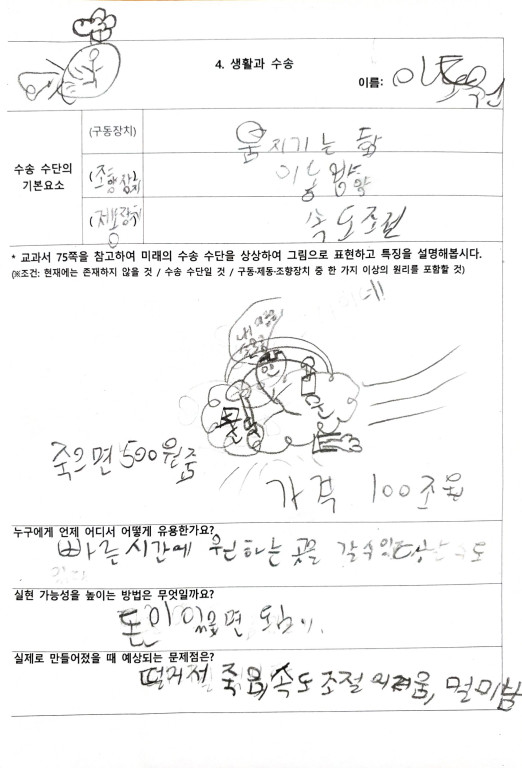 4. 생활과 수송
이름:
수송 수단의
기본요소
(구동장치)
움지기는 힘
(조향장치)
이동 방향
(제동장치)
속도조절
* 교과서 75쪽을 참고하여 미래의 수송 수단을 상상하여 그림으로 표현하고 특징을 설명해봅시다.
(※조건: 현재에는 존재하지 않을 것 / 수송 수단일 것 / 구동·제동·조향장치 중 한 가지 이상의 원리를 포함할 것)
죽으면 500원줌
가격 100조원
누구에게 언제 어디서 어떻게 유용한가요?
빠른시간에 원하는 곳을 갈수있다
실현 가능성을 높이는 방법은 무엇일까요?
돈이 있으면 됨
실제로 만들어졌을 때 예상되는 문제점은?
떨어져 죽음, 속도 조절 어려움, 멀미남